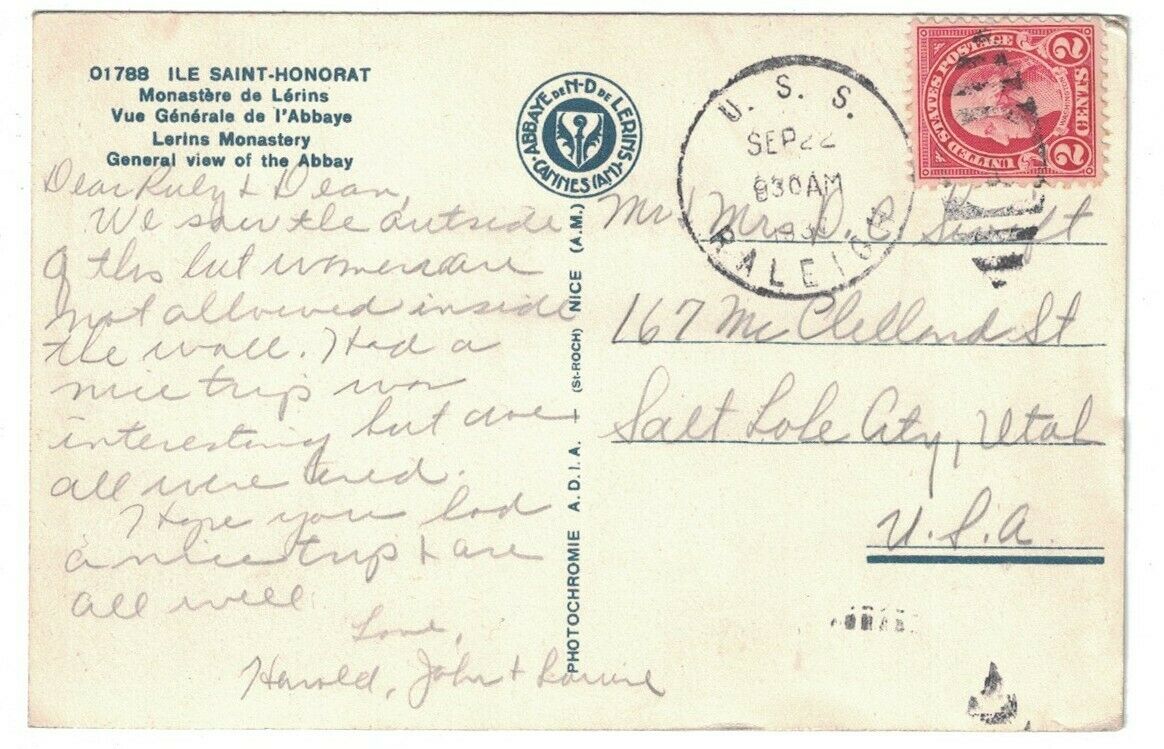 01788 ILE SAINT-HONORAT
Monastère de Lérins
Vue Générale de l'Abbaye
Lerins Monastery
General view of the Abbay
Dear Ruby & Dean,
We saw the outside
of this but women are
not allowed inside
the wall. Had a
nice trip was
interesting but
all were tired.
Hope you had
a nice trip & are
all well.
Love,
Harold, John &
ABBAYE DE N-D DE LERINS
CANNES (AM)
PHOTOCHROMIE A.D.I.A. - (St-ROCH) NICE (A.M.)
U. S. S.
SEP 22
830AM
RALEIGH
UNITED STATES POSTAGE
WASHINGTON
2 CENTS 2
Mr Mrs D. C. Swift
167 McClelland St
Salt Lake City, Utah
U.S.A.